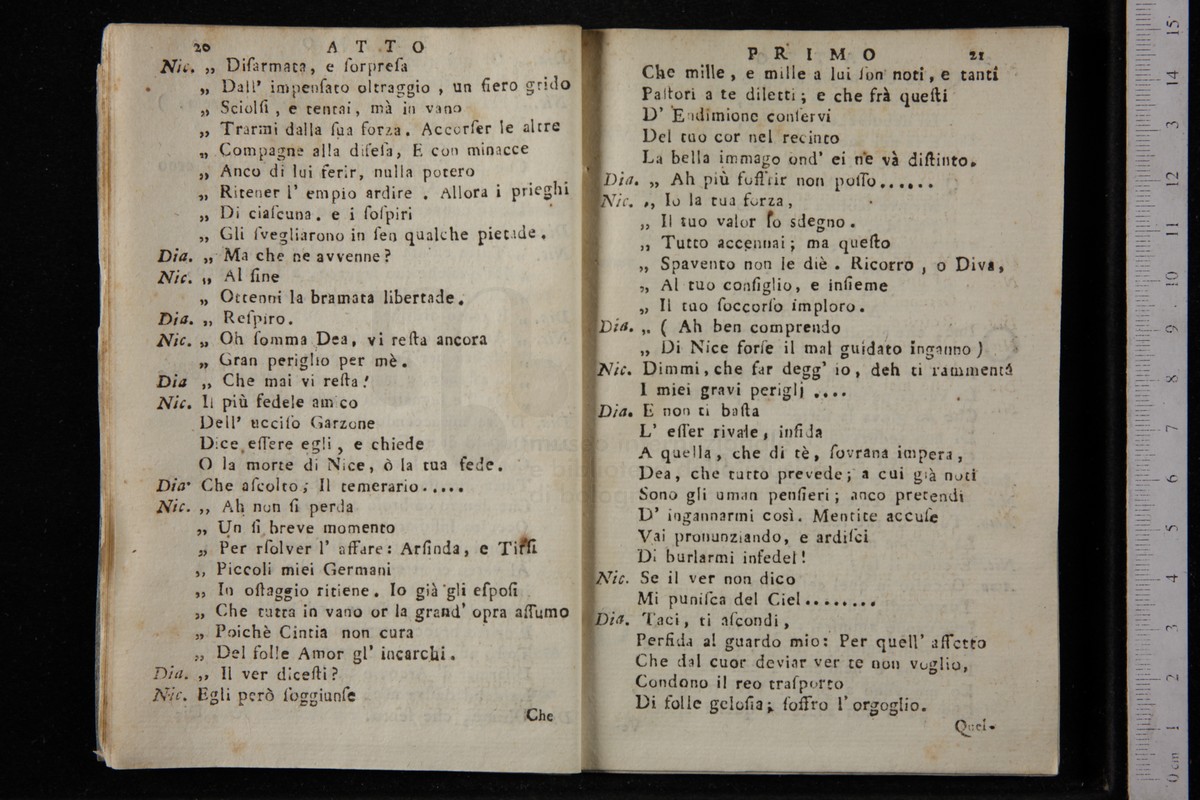 20 ATTO
Nic. „ Diſarmata, e ſorpreſa
„ Dall' impenſato oltraggio, un fiero grido
„ Sciolſi, e tentai, mà in vano
„ Trarmi dalla ſua forza. Accorſer le altre
„ Compagne alla difeſa, E con minacce
„ Anco di lui ferir, nulla potero
„ Ritener l' empio ardire. Allora i prieghi
„ Di ciaſcuna. e i ſoſpiri
„ Gli ſvegliarono in ſen qualche pietade.
Dia. „ Ma che ne avvenne?
Nic. „ Al fine
„ Ottenni la bramata libertade.
Dia. „ Reſpiro.
Nic. „ Oh ſomma Dea, vi reſta ancora
„ Gran periglio per mè.
Dia „ Che mai vi reſta!
Nic. Il più fedele amico
Dell' ucciſo Garzone
Dice eſſere egli, e chiede
O la morte di Nice, ò la tua fede.
Dia. Che aſcolto; Il temerario.....
Nic. „ Ah non ſi perda
„ Un ſi breve momento
„ Per rſolver l' affare: Arſinda, e Tirſi
„ Piccoli miei Germani
„ In oſtaggio ritiene. Io già gli eſpoſi
„ Che tutta in vano or la grand' opra aſſumo
„ Poichè Cintia non cura
„ Del folle Amor gl' incarchi.
Dia. „ Il ver diceſti?
Nic. Egli però ſoggiunſe
Che
PRIMO 21
Che mille, e mille a lui ſon noti, e tanti
Paſtori a te diletti; e che frà queſti
D' Endimione conſervi
Del tuo cor nel recinto
La bella immago ond' ei ne và diſtinto.
Dia. „ Ah più ſoffrir non poſſo......
Nic. „ Io la tua forza,
„ Il tuo valor ſo sdegno.
„ Tutto accennai; ma queſto
„ Spavento non le diè. Ricorro, o Diva,
„ Al tuo conſiglio, e inſieme
„ Il tuo ſoccorſo imploro.
Dia. „ ( Ah ben comprendo
„ Di Nice forſe il mal guidato inganno )
Nic. Dimmi, che far degg' io, deh ti rammentá
I miei gravi periglj ....
Dia. E non ti baſta
L' eſſer rivale, infida
A quella, che di tè, ſovrana impera,
Dea, che tutto prevede; a cui già noti
Sono gli uman penſieri; anco pretendi
D' ingannarmi così. Mentite accuſe
Vai pronunziando, e ardiſci
Di burlarmi infedel!
Nic. Se il ver non dico
Mi puniſca del Ciel........
Dia. Taci, ti aſcondi,
Perfida al guardo mio: Per quell' affetto
Che dal cuor deviar ver te non voglio,
Condono il reo traſporto
Di folle geloſia; ſoffro l' orgoglio.
Quel-